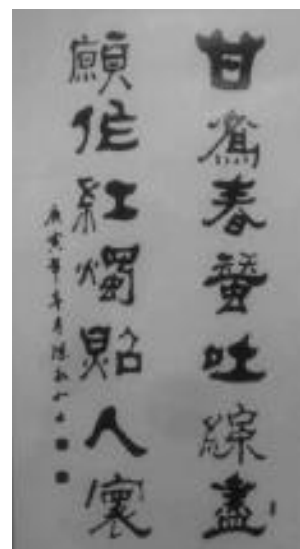 甘為春蠶吐絲盡
願作紅燭照人寰
庚寅年